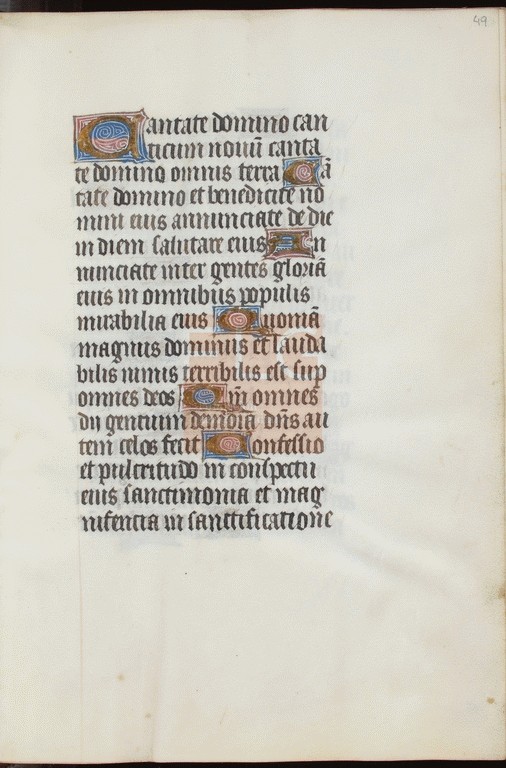 49
Cantate domino can
ticum nouū canta
te domino omnis terra Cā
tate domino et benedicite no
mini eius annunciate de die
in diem salutare eius An
nunciate inter gentes gloriā
eius in omnibus populis
mirabilia eius Quoniā
magnus dominus et lauda
bilis nimis terribilis est sup
omnes deos Qm̄ omnes
dii gentium demonia dn̄s au
tem celos fecit Confessio
et pulcritudo in conspectu
eius sanctimonia et mag
nifencia in sanctificatione